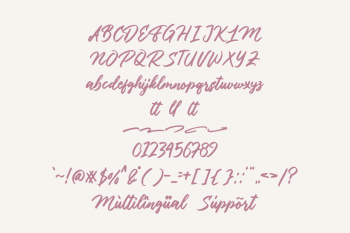 ABCDEFGHIJKLM
NOPQRSTUVWXYZ
abcdefghijklmnopqrstuvwxyz
tt ll tt
0123456789
`~!@#$%^&*()-_=+[]{};:'",.<>/?
Mùltilîngüal Súppõrt